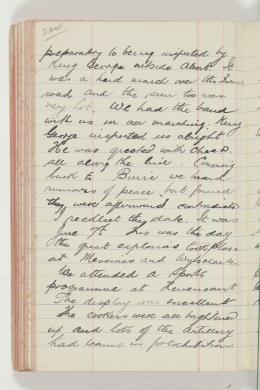 224
preparatory to being inspected by
King George outside Albert. It
was a hard march over the French
roads and the sun too was
very hot. We had the band
with us in our marching. King
George inspected us alright
He was greeted with cheers
all along the line. Coming
back to Buire we heard
rumours of peace but found
they were afterward contradicted
I recollect the date. It was
June 7th This was the day
the great explosions took place
at Messines and Wytschaete
We attended a sports
programme at Henencourt
The display was excellent
The cookers were all brightened
up and lots of the artillery
had teams in